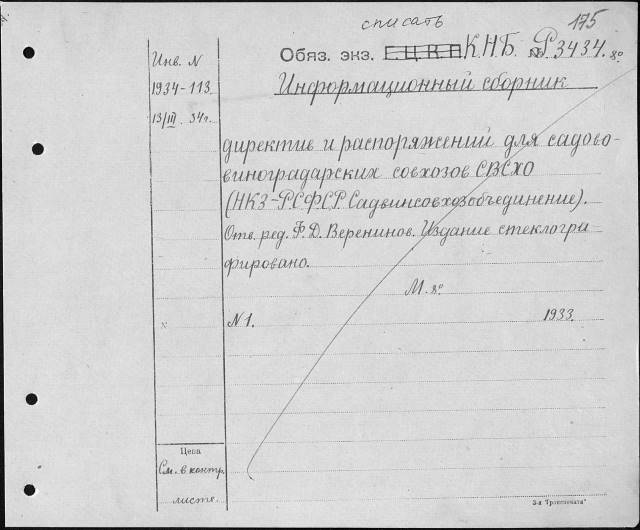 списать 175
Обяз. экз. Г.Ц.К.П. К.Н.Б. № Р.3434. 8°
Информационный сборник
Инв. N
1934-113
13/III 34г.
директив и распоряжений для садово-
виноградарских совхозов СВСХО
(НКЗ-РСФСР. Садвинсовхозобъединение).
Отв. ред. Ф.Д. Веренинов. Издание стеклогра-
фировано.
М. 8°
x N1. 1933.
Цена
См. в контр.
листе.
3-я "Транспечати"